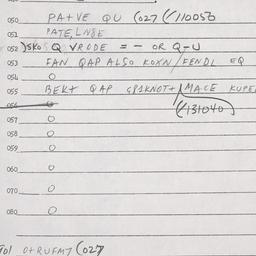 050 PATVE QU (027 (/110053
051 PATE, LN8E
052 )SKO'S Q VRODE = - OR Q-U
053 FAN QAP ALSO KOXN/FENDL EQ
054 O
055 BEKT QAP GP1KNOT+/MACE KUPE
056 (/131040)
057 O
058 O
059 O
060 O
070 O
080 O
701 O+RUFM7 (027